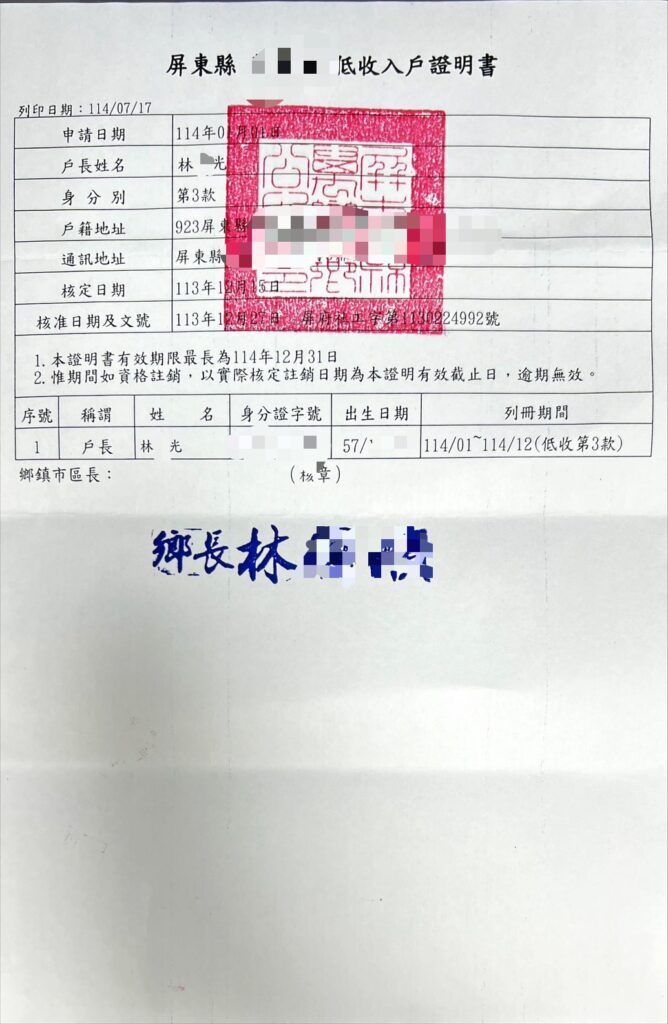 屏東縣 低收入戶證明書
列印日期：114/07/17
申請日期 114年01月01日
戶長姓名 林 光
身分別 第3款
戶籍地址 923屏東縣
通訊地址 屏東縣
核定日期 113年12月15日
核准日期及文號 113年12月27日 屏府社工字第1130224992號
1.本證明書有效期限最長為114年12月31日
2.惟期間如資格註銷，以實際核定註銷日期為本證明有效截止日，逾期無效。
序號 稱謂 姓 名 身分證字號 出生日期 列冊期間
1 戶長 林 光 57/ 114/01~114/12(低收第3款)
鄉鎮市區長： (核章)
鄉長林